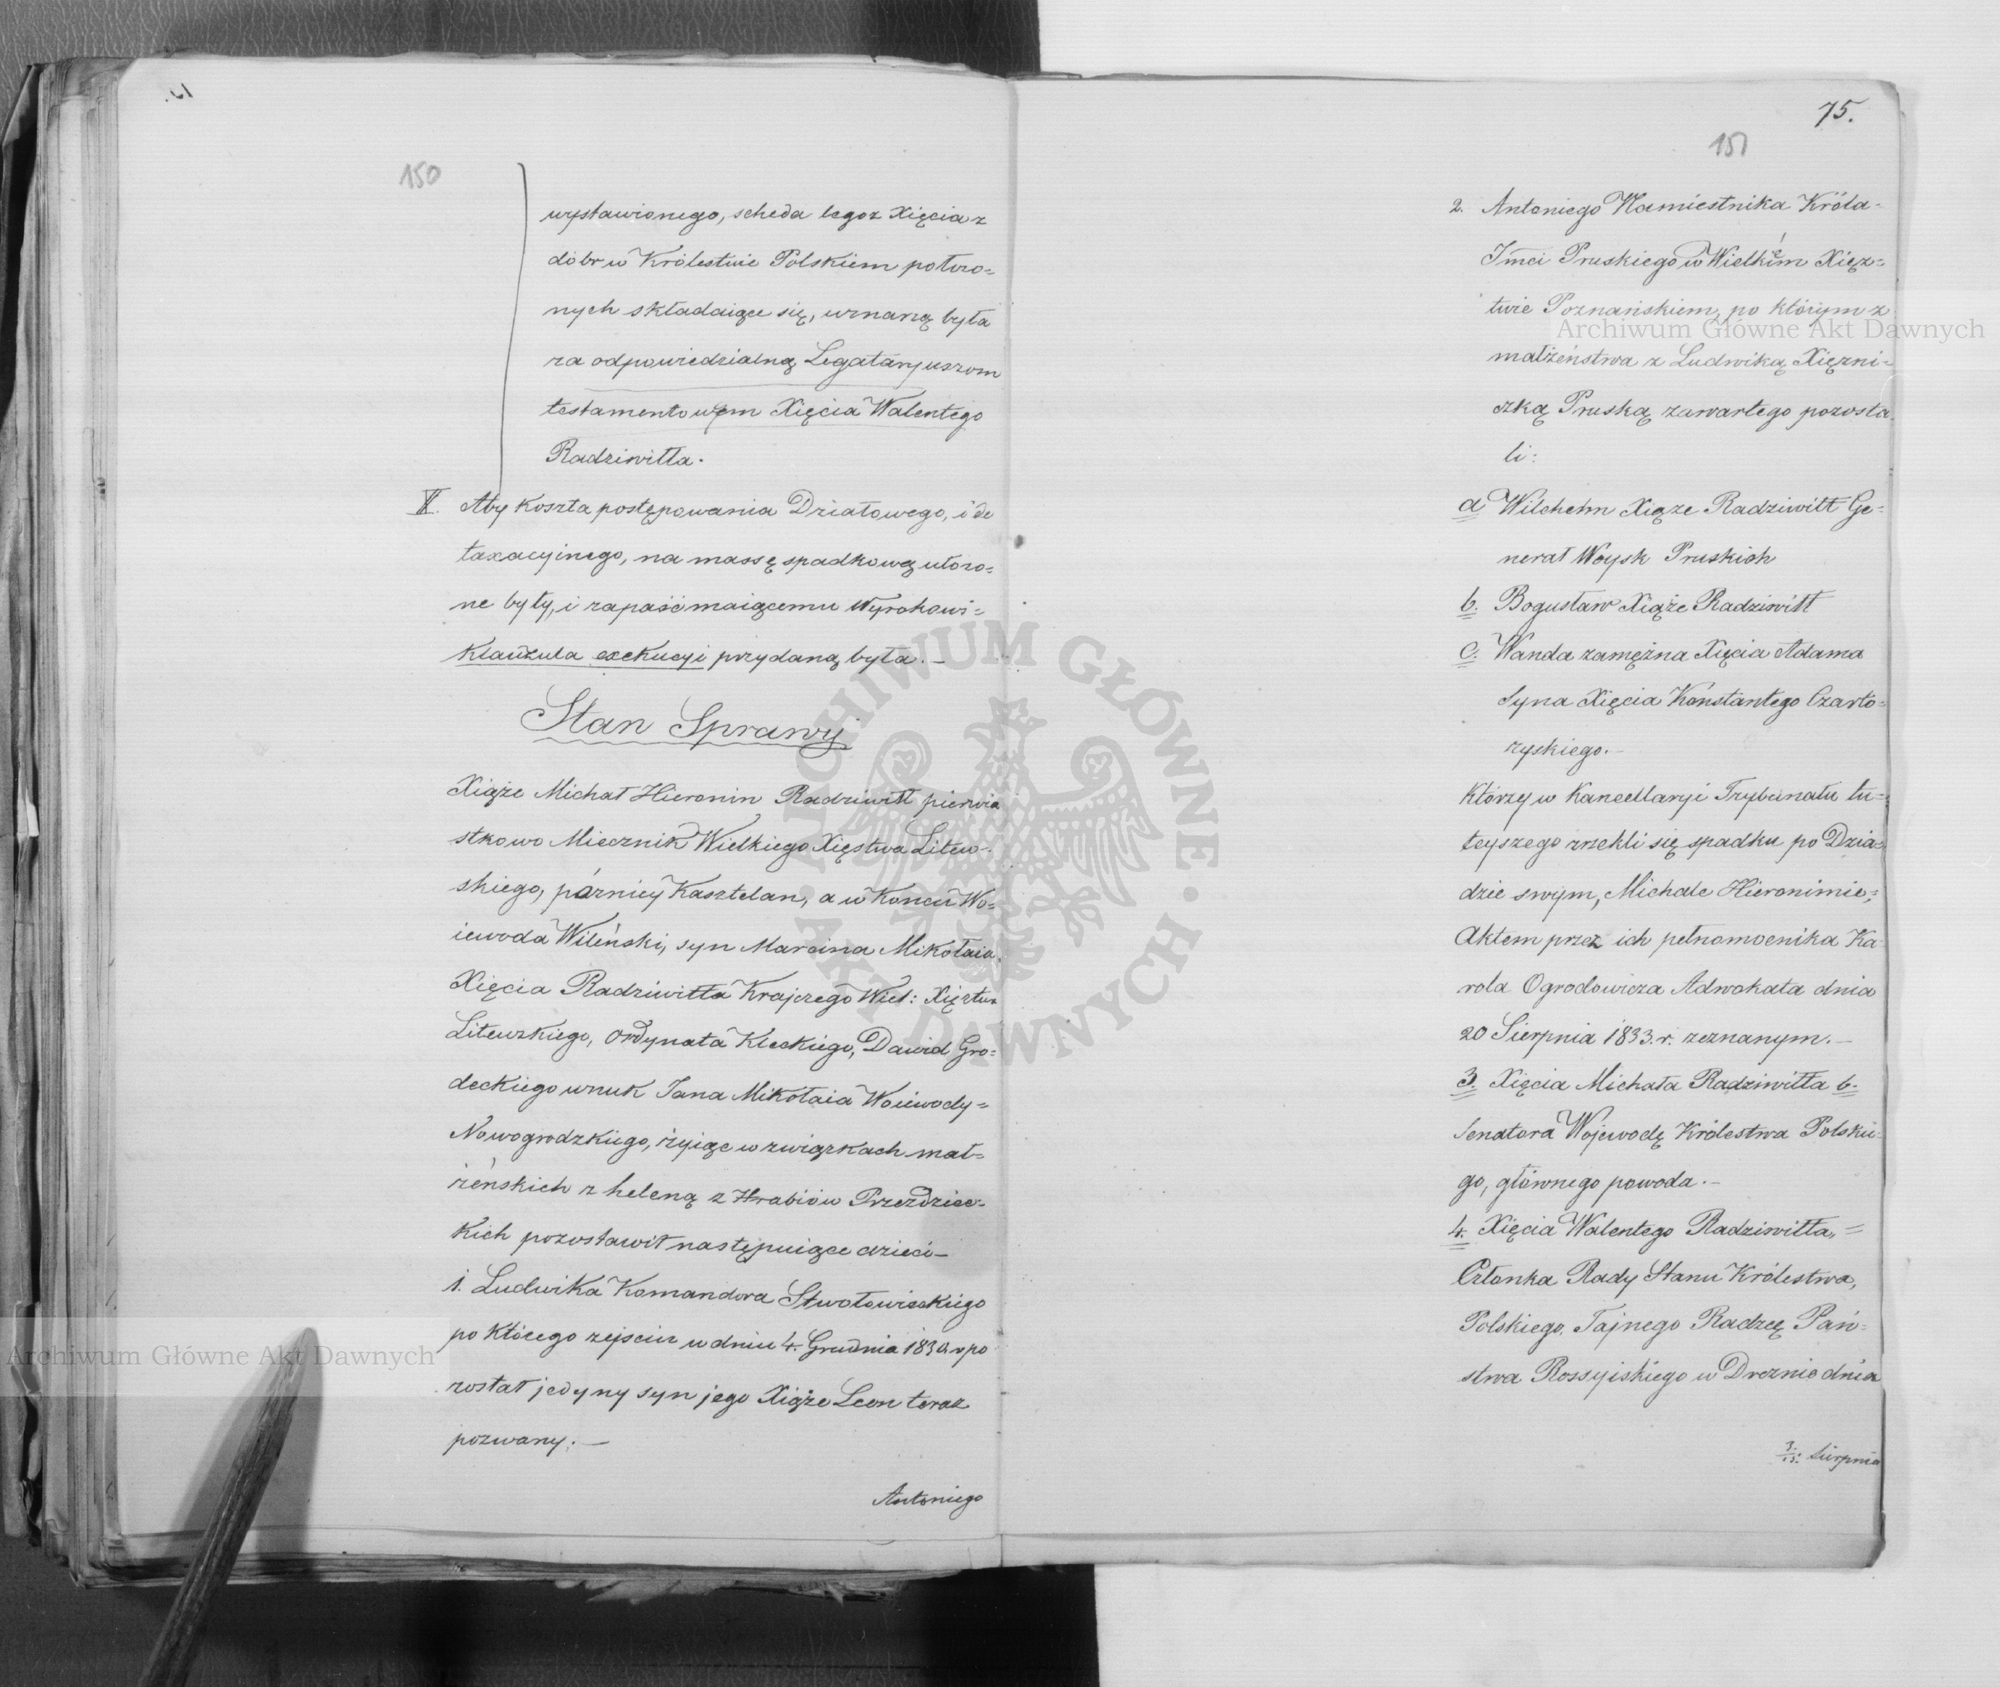 150
wystawionego, scheda tegoż Xięcia z
dóbr w Królestwie Polskiem położo=
nych składaiące się, uznaną była
za odpowiedzialną Legataryuszom
testamentowym Xięcia Walentego
Radziwiłła.
Aby koszta postępowania Działowego, i de
taxacyjnego, na massę spadkową włożo=
ne były, i zapaść maiącemu Wyrokowi=
klauzula exekucyi przydaną była. —
Stan Sprawy
Xiąże Michał Hieronim Radziwiłł pierwia
stkowo Miecznik Wielkiego Xięstwa Litew-
skiego, póżniey Kasztelan, a w końcu Wo=
iewoda Wileński, syn Marcina Mikołaia
Xięcia Radziwiłła Krajczego Wiel: Xięztwa
Litewskiego, Ordynata Kleckiego, Dawid Gro=
deckiego wnuk Jana Mikołaia Woiewody=
Nowogrodzkiego, żyiąc w związkach mał=
żeńskich z heleną z Hrabiów Przezdziec-
kich pozostawił następuiące dzieci —
1. Ludwika Komandora Stwołowickiego
po którego zejściu w dniu 4. Grudnia 1830. r po
został jedyny syn jego Xiąże Leon teraz
pozwany. —
Antoniego
75.
151
2. Antoniego Namiestnika Króla-
Jmci Pruskiego w Wielkiém Xięz=
twie Poznańskiem, po którym z
małżeństwa z Ludwiką Xiężni=
czką Pruską zawartego pozosta
li:
a Wilchelm Xiąże Radziwiłł Ge=
nerał Woysk Pruskich
b. Bogusław Xiąże Radziwiłł
c. Wanda zamężna Xięcia Adama
syna Xięcia Konstantego Czarto=
ryskiego. —
którzy w Kancellaryi Trybunału tu=
teyszego zrzekli się spadku po Dzia=
dzie swym, Michale Hieronimie;
Aktem przez ich pełnomocnika Ka
rola Ogrodowicza Adwokata dnia
20 Sierpnia 1833. r. zeznanym. —
3. Xięcia Michała Radziwiłła b.
Senatora Wojewodę Królestwa Polskie
go, głównego powoda. —
4. Xięcia Walentego Radziwiłła, =
Członka Rady Stanu Królestwa,
Polskiego, Tajnego Radzcę Pań=
stwa Rossyiskiego w Dreznie dnia
Sierpnia
Archiwum Główne Akt Dawnych
Archiwum Główne Akt Dawnych
ARCHIWUM GŁÓWNE · AKT DAWNYCH ·